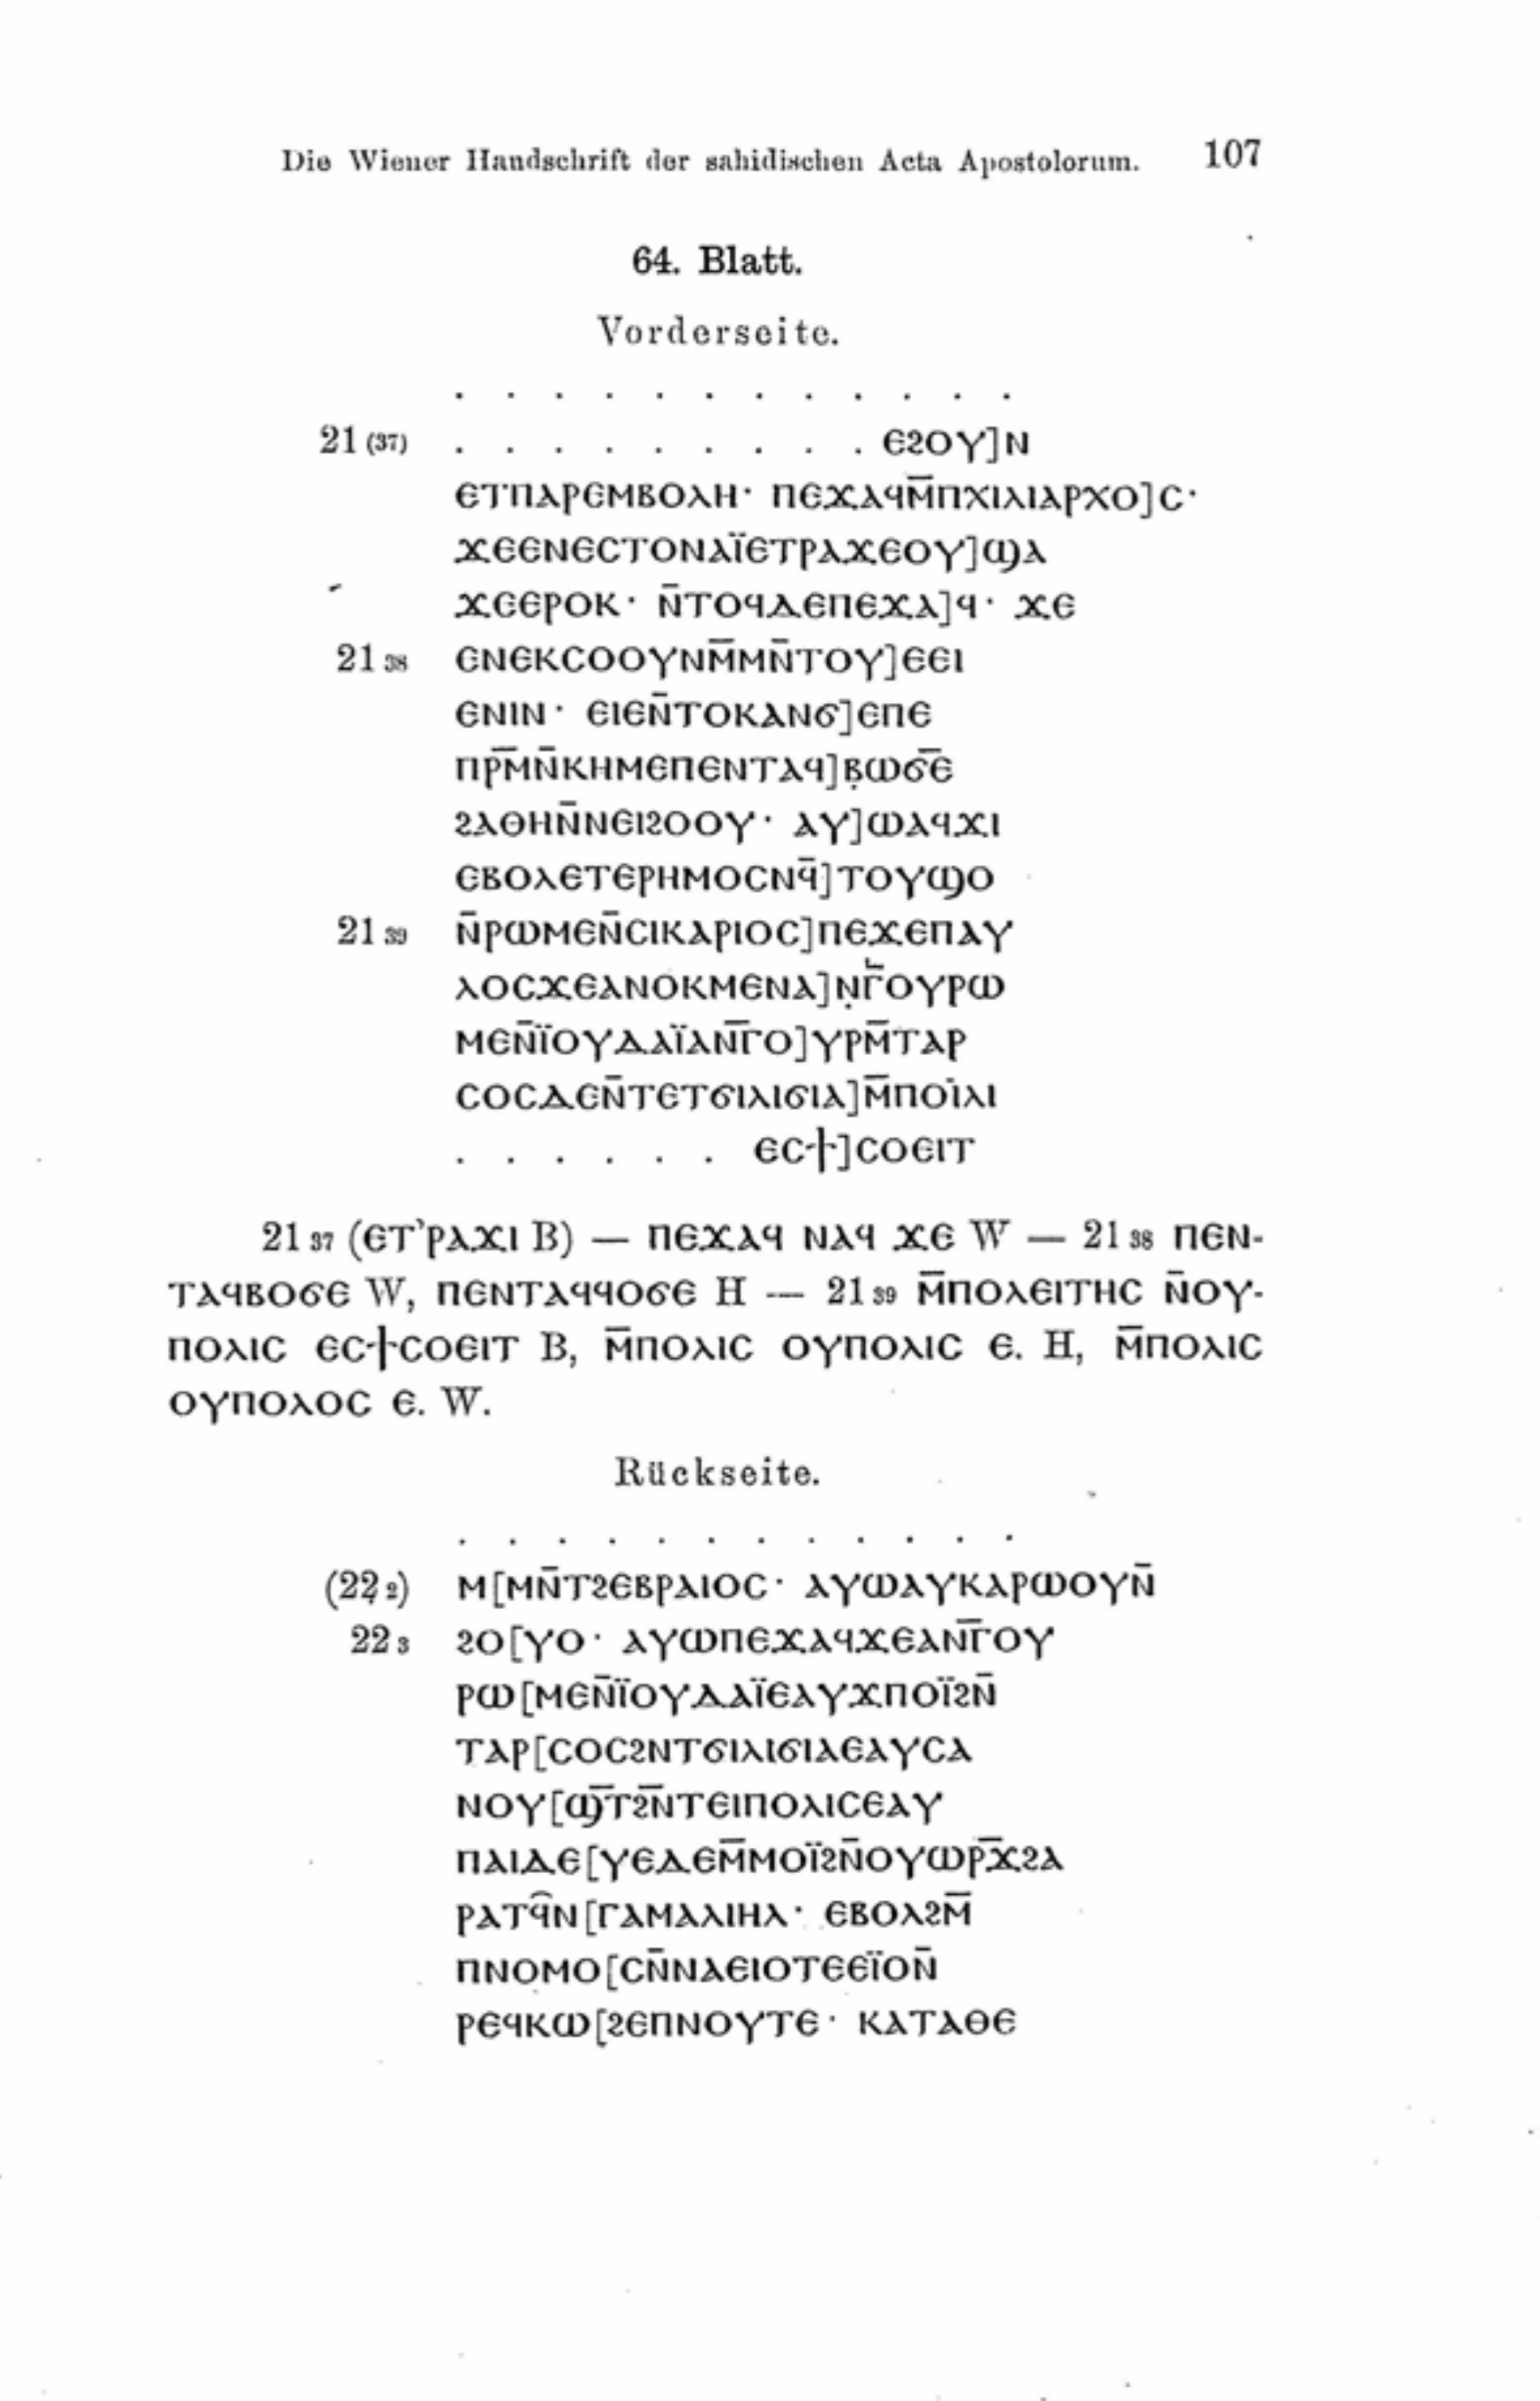 Die Wiener Handschrift der sahidischen Acta Apostolorum. 107
64. Blatt.
Vorderseite.
. . . . . . . . . . . .
21 (37) . . . . . . . . . ⲉϩⲟⲩ]ⲛ
ⲉⲧⲡⲁⲣⲉⲙⲃⲟⲗⲏ· ⲡⲉϫⲁϥⲙ̄ⲡⲭⲓⲗⲓⲁⲣⲭⲟ]ⲥ·
ϫⲉⲉⲛⲉⲥⲧⲟⲛⲁⲓ̈ⲉⲧⲣⲁϫⲉⲟⲩ]ϣⲁ
ϫⲉⲉⲣⲟⲕ· ⲛ̄ⲧⲟϥⲇⲉⲡⲉϫⲁ]ϥ· ϫⲉ
21 38 ⲉⲛⲉⲕⲥⲟⲟⲩⲛⲙ̄ⲙⲛ̄ⲧⲟⲩ]ⲉⲉⲓ
ⲉⲛⲓⲛ· ⲉⲓⲉⲛ̄ⲧⲟⲕⲁⲛϭ]ⲉⲡⲉ
ⲡⲣⲙ̄ⲛ̄ⲕⲏⲙⲉⲡⲉⲛⲧⲁϥ]ⲃ̣ⲱϭⲉ̄
ϩⲁⲑⲏⲛ̄ⲛⲉⲓϩⲟⲟⲩ· ⲁⲩ]ⲱⲁϥϫⲓ
ⲉⲃⲟⲗⲉⲧⲉⲣⲏⲙⲟⲥⲛϥ̄]ⲧⲟⲩϣⲟ
21 39 ⲛ̄ⲣⲱⲙⲉⲛ̄ⲥⲓⲕⲁⲣⲓⲟⲥ]ⲡⲉϫⲉⲡⲁⲩ
ⲗⲟⲥϫⲉⲁⲛⲟⲕⲙⲉⲛⲁ]ⲛ̣ⲅ̄ⲟⲩⲣⲱ
ⲙⲉⲛ̄ⲓ̈ⲟⲩⲇⲁⲓ̈ⲁⲛⲅ̄ⲟ]ⲩⲣⲙ̄ⲧⲁⲣ
ⲥⲟⲥⲇⲉⲛ̄ⲧⲉⲧϭⲓⲗⲓϭⲓⲁ]ⲙ̄ⲡⲟⲓ̇ⲗⲓ
. . . . . . ⲉⲥϯ]ⲥⲟⲉⲓⲧ
21 37 (ⲉⲧ’ⲣⲁϫⲓ B) — ⲡⲉϫⲁϥ ⲛⲁϥ ϫⲉ W — 21 38 ⲡⲉⲛ-
ⲧⲁϥⲃⲟϭⲉ W, ⲡⲉⲛⲧⲁϥϥⲟϭⲉ H — 21 39 ⲙ̄ⲡⲟⲗⲉⲓⲧⲏⲥ ⲛ̄ⲟⲩ-
ⲡⲟⲗⲓⲥ ⲉⲥϯⲥⲟⲉⲓⲧ B, ⲙ̄ⲡⲟⲗⲓⲥ ⲟⲩⲡⲟⲗⲓⲥ ⲉ. H, ⲙ̄ⲡⲟⲗⲓⲥ
ⲟⲩⲡⲟⲗⲟⲥ ⲉ. W.
Rückseite.
. . . . . . . . . . . .
(22 2) ⲙ[ⲙⲛ̄ⲧϩⲉⲃⲣⲁⲓⲟⲥ· ⲁⲩⲱⲁⲩⲕⲁⲣⲱⲟⲩⲛ̄
22 3 ϩⲟ[ⲩⲟ· ⲁⲩⲱⲡⲉϫⲁϥϫⲉⲁⲛⲅ̄ⲟⲩ
ⲣⲱ[ⲙⲉⲛ̄ⲓ̈ⲟⲩⲇⲁⲓ̈ⲉⲁⲩϫⲡⲟⲓ̈ϩⲛ̄
ⲧⲁⲣ[ⲥⲟⲥϩⲛⲧϭⲓⲗⲓϭⲓⲁⲉⲁⲩⲥⲁ
ⲛⲟⲩ[ϣ̄ⲧϩ̄ⲛⲧⲉⲓⲡⲟⲗⲓⲥⲉⲁⲩ
ⲡⲁⲓⲇⲉ[ⲩⲉⲇⲉⲙ̄ⲙⲟⲓ̈ϩⲛ̄ⲟⲩⲱⲣϫ̄ϩⲁ
ⲣⲁⲧϥ̑ⲛ[ⲅⲁⲙⲁⲗⲓⲏⲗ· ⲉⲃⲟⲗϩⲙ̄
ⲡⲛⲟⲙⲟ[ⲥⲛ̄ⲛⲁⲉⲓⲟⲧⲉⲉⲓ̈ⲟⲛ̄
ⲣⲉϥⲕⲱ[ϩⲉⲡⲛⲟⲩⲧⲉ· ⲕⲁⲧⲁⲑⲉ